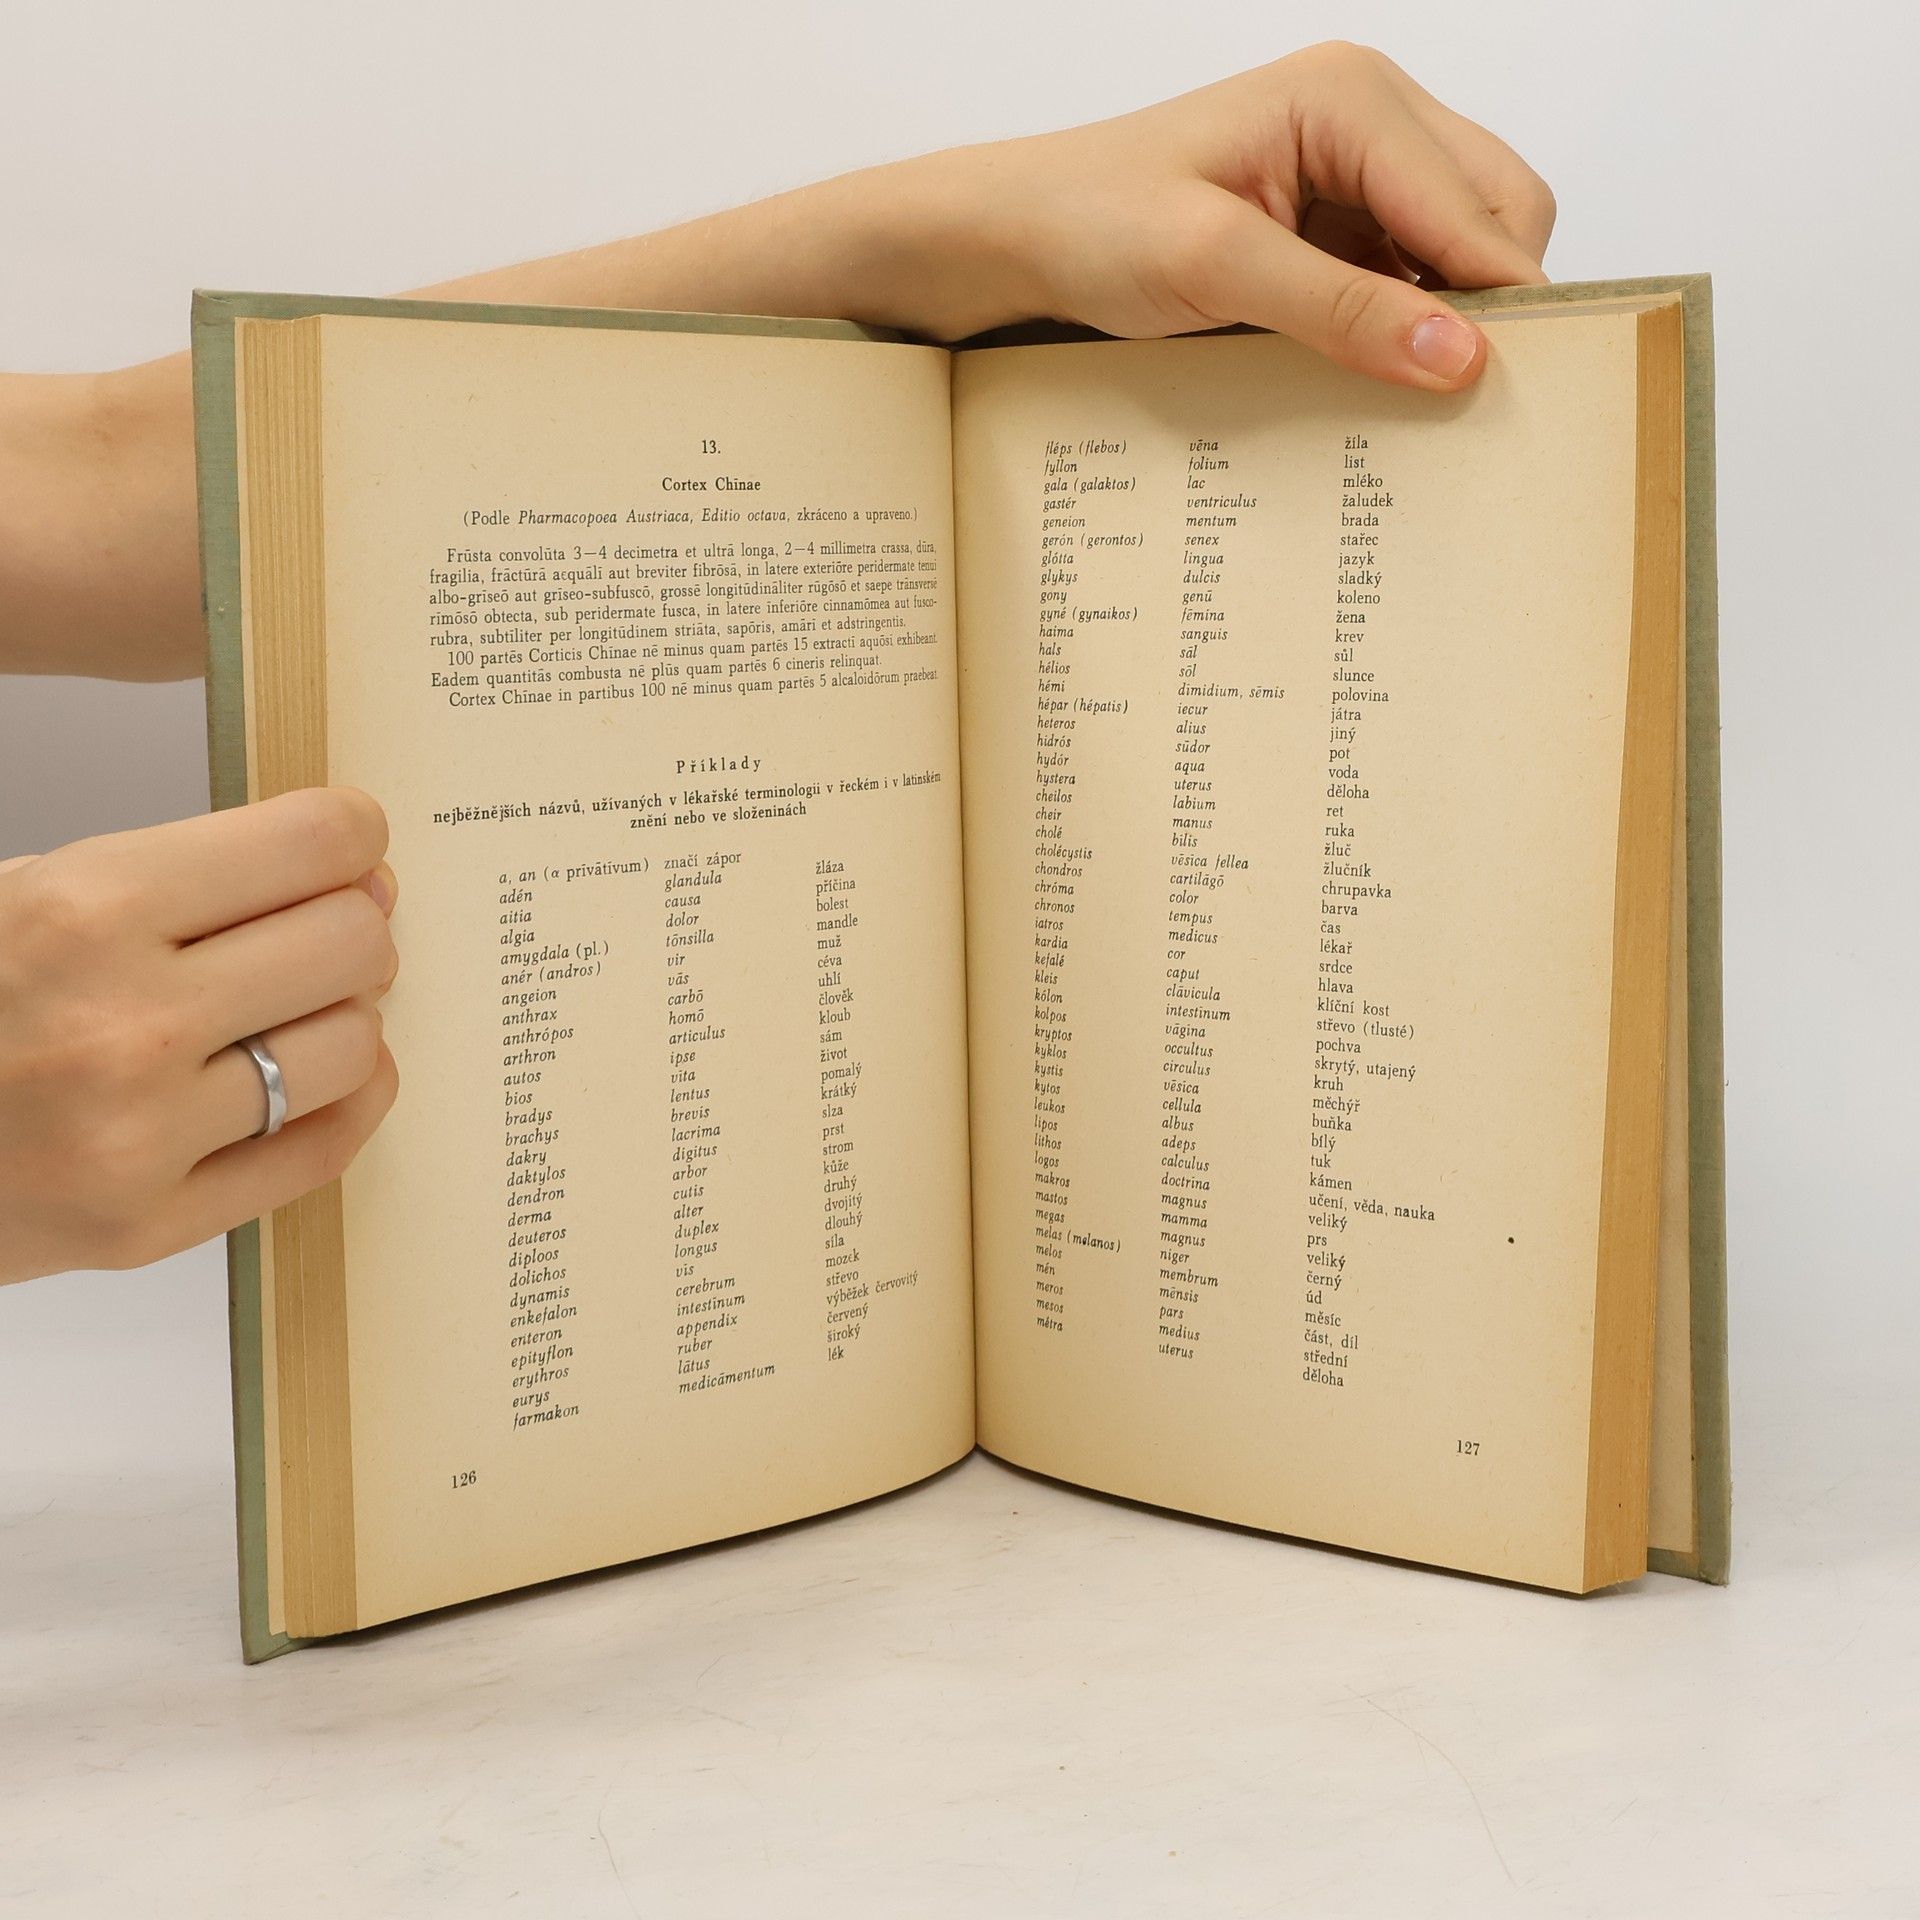 13.
Cortex Chīnae
(Podle Pharmacopoea Austriaca, Editio octava, zkráceno a upraveno.)
Frūsta convolūta 3—4 decimetra et ultrā longa, 2—4 millimetra crassa, dūra,
fragilia, frāctūrā aequālī aut breviter fibrōsā, in latere exteriōre peridermate tenui
albo-grīseō aut grīseo-subfuscō, grossē longitūdināliter rūgōsō et saepe trānsversē
rīmōsō obtecta, sub peridermate fusca, in latere inferiōre cinnamōmea aut fusco-
rubra, subtīliter per longitūdinem striāta, sapōris, amārī et adstringentis.
100 partēs Corticis Chīnae nē minus quam partēs 15 extractī aquōsī exhibeant.
Eadem quantitās combusta nē plūs quam partēs 6 cineris relinquat.
Cortex Chīnae in partibus 100 nē minus quam partēs 5 alcaloidōrum praebeat.
Příklady
nejběžnějších názvů, užívaných v lékařské terminologii v řeckém i v latinském
znění nebo ve složeninách
a, an (α prīvātīvum) značí zápor
adén glandula žláza
aitia causa příčina
algia dolor bolest
amygdala (pl.) tōnsilla mandle
anér (andros) vir muž
angeion vās céva
anthrax carbō uhlí
anthrópos homō člověk
arthron articulus kloub
autos ipse sám
bios vīta život
bradys lentus pomalý
brachys brevis krátký
dakry lacrima slza
daktylos digitus prst
dendron arbor strom
derma cutis kůže
deuteros alter druhý
diploos duplex dvojitý
dolichos longus dlouhý
dynamis vīs síla
enkefalon cerebrum mozek
enteron intestīnum střevo
epityflon appendix výběžek červovitý
erythros ruber červený
eurys lātus široký
farmakon medicāmentum lék
126
fléps (flebos) vēna žíla
fyllon folium list
gala (galaktos) lac mléko
gastér ventriculus žaludek
geneion mentum brada
gerón (gerontos) senex stařec
glótta lingua jazyk
glykys dulcis sladký
gony genū koleno
gyné (gynaikos) fēmina žena
haima sanguis krev
hals sāl sůl
hélios sōl slunce
hémi dimidium, sēmis polovina
hépar (hépatis) iecur játra
heteros alius jiný
hidrós sūdor pot
hydór aqua voda
hystera uterus děloha
cheilos labium ret
cheir manus ruka
cholé bilis žluč
cholécystis vēsīca fellea žlučník
chondros cartilāgō chrupavka
chróma color barva
chronos tempus čas
iatros medicus lékař
kardia cor srdce
kefalé caput hlava
kleis clāvicula klíční kost
kólon intestīnum střevo (tlusté)
kolpos vāgīna pochva
kryptos occultus skrytý, utajený
kyklos circulus kruh
kystis vēsīca měchýř
kytos cellula buňka
leukos albus bílý
lipos adeps tuk
lithos calculus kámen
logos doctrina učení, věda, nauka
makros magnus veliký
mastos mamma prs
megas magnus veliký
melas (melanos) niger černý
melos membrum úd
mén mēnsis měsíc
meros pars část, díl
mesos medius střední
métra uterus děloha
127